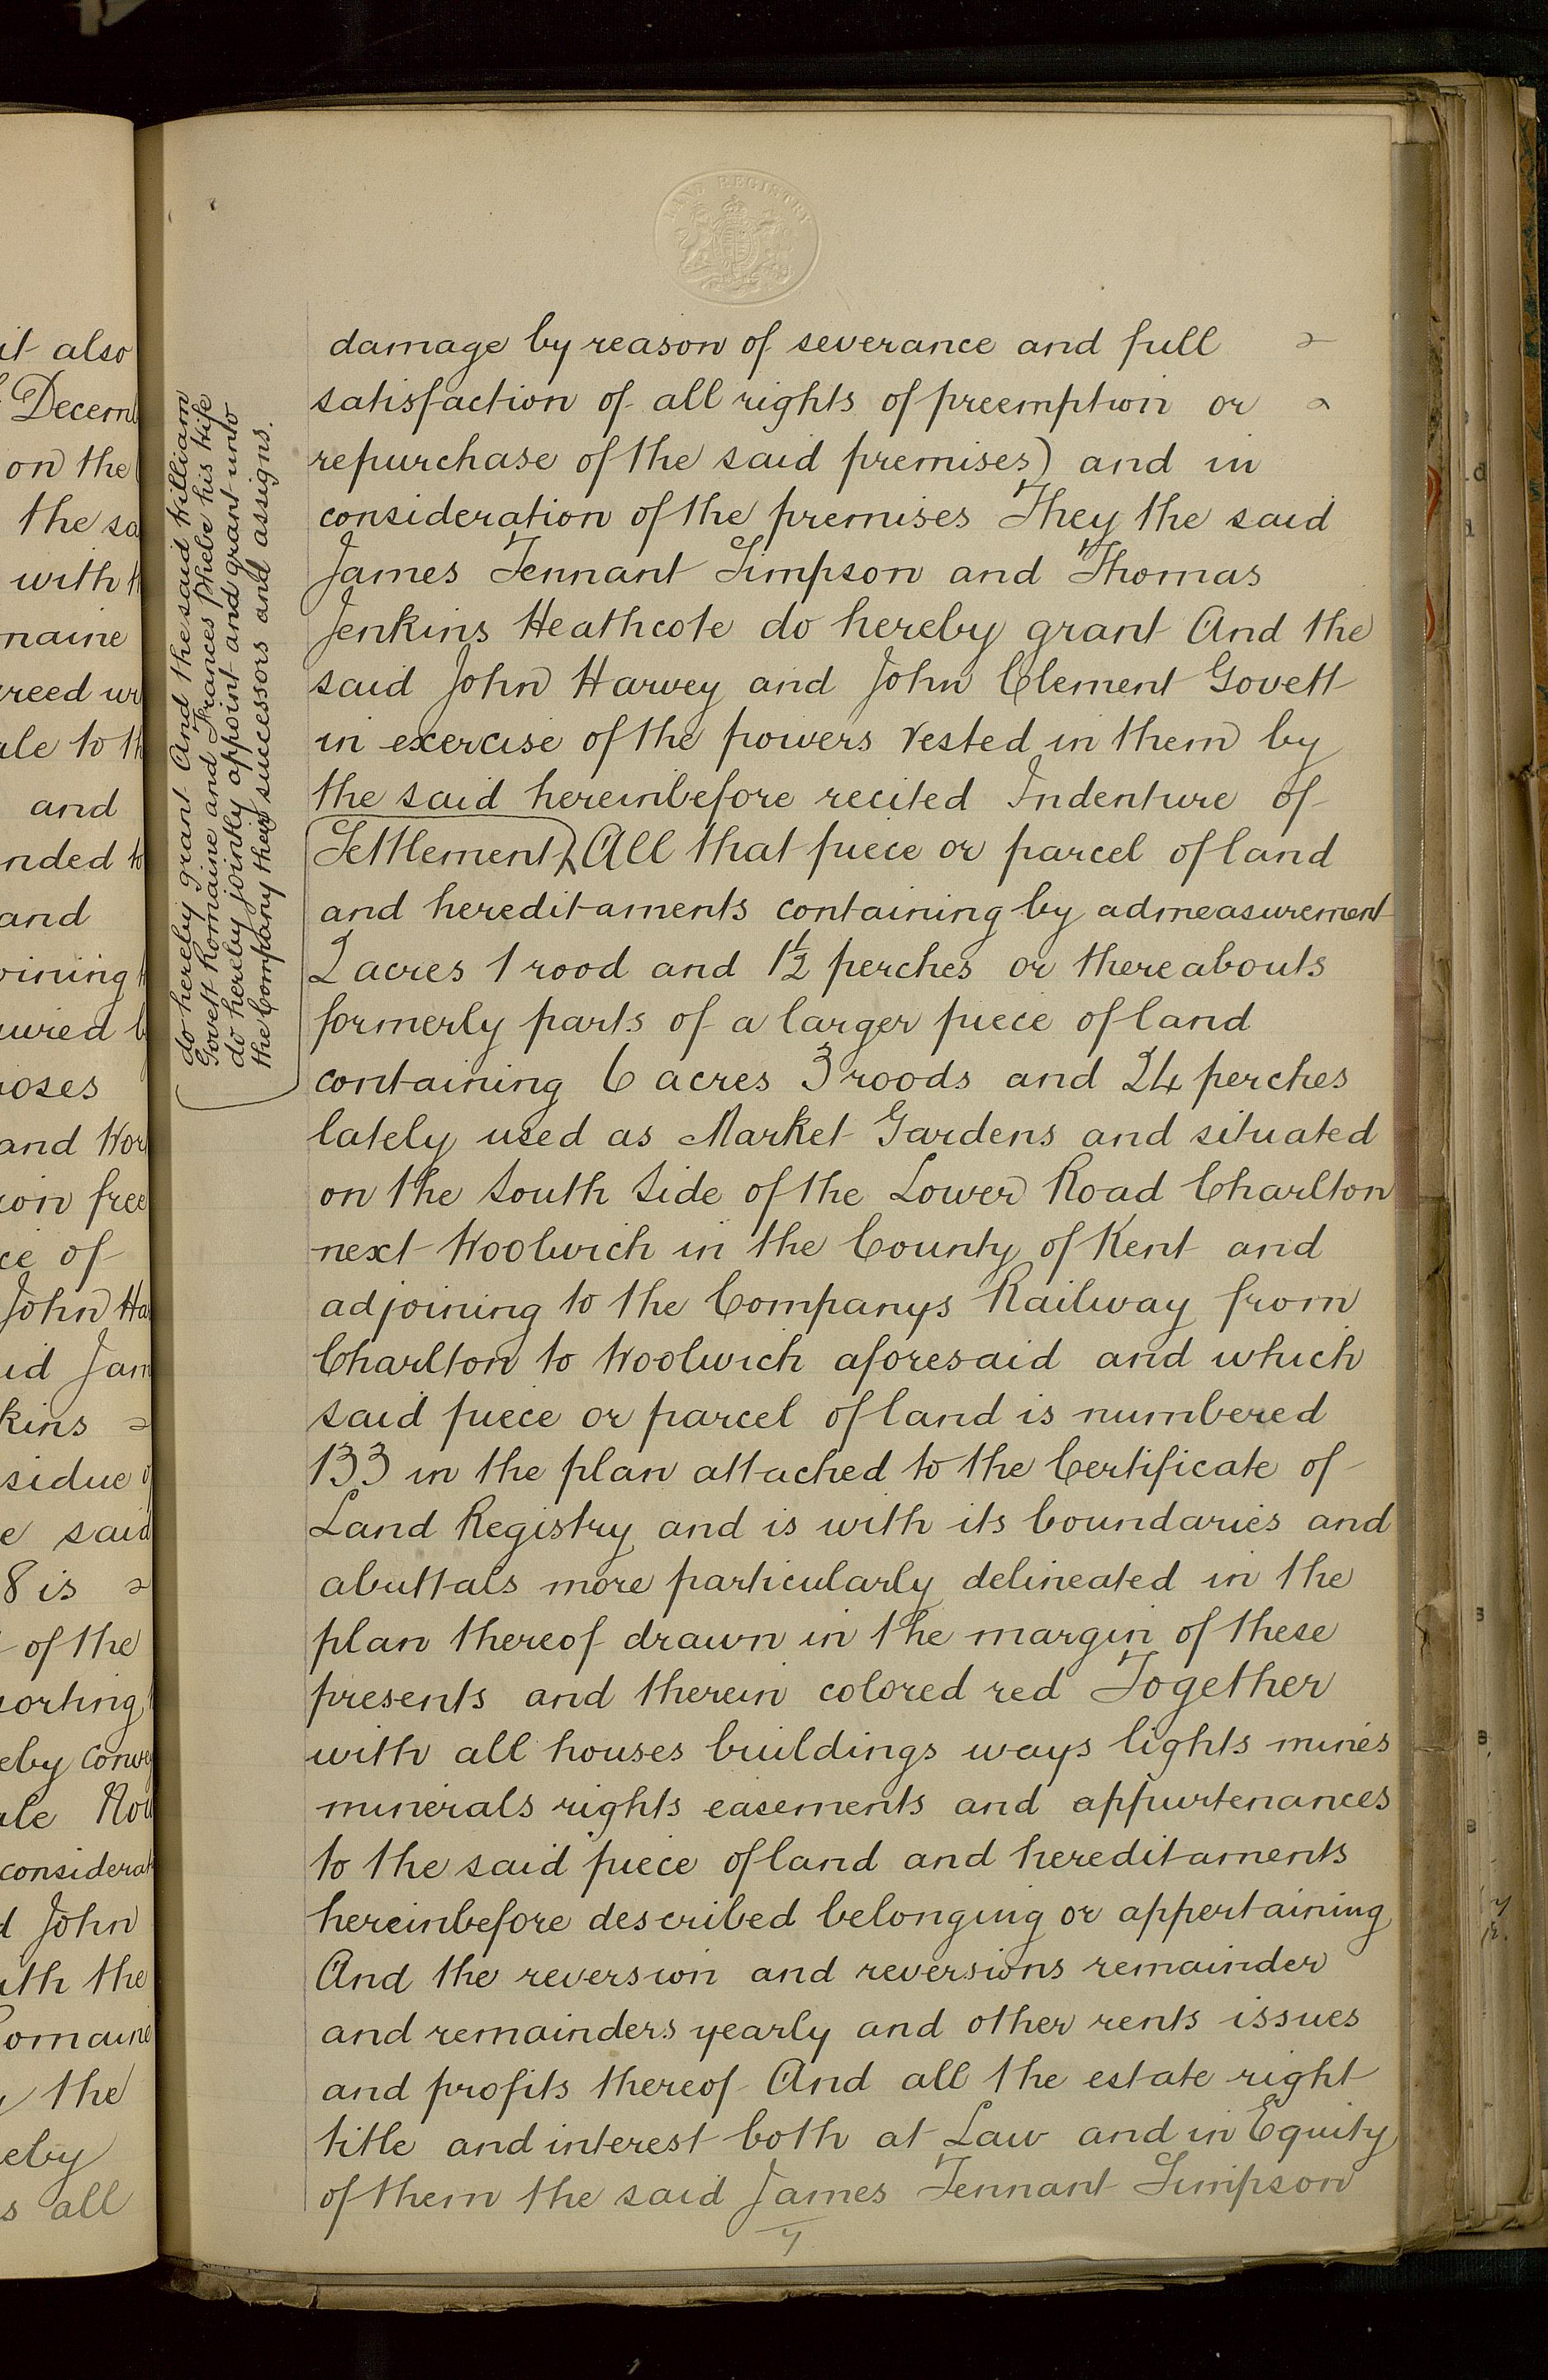 LAND REGISTRY
damage by reason of severance and full
satisfaction of all rights of preemption or
repurchase of the said premises) and in
consideration of the premises They the said
James Tennant Simpson and Thomas
Jenkins Heathcote do hereby grant And the
said John Harvey and John Clement Govett
in exercise of the powers vested in them by
the said hereinbefore recited Indenture of
Settlement All that piece or parcel of land
do hereby grant And the said William
Govett Romaine and Frances Phebe his Wife
do hereby jointly appoint and grant unto
the Company their successors and assigns.
and hereditaments containing by admeasurement
2 acres 1 rood and 1½ perches or thereabouts
formerly parts of a larger piece of land
containing 6 acres 3 roods and 24 perches
lately used as Market Gardens and situated
on the South Side of the Lower Road Charlton
next Woolwich in the County of Kent and
adjoining to the Companys Railway from
Charlton to Woolwich aforesaid and which
said piece or parcel of land is numbered
133 in the plan attached to the Certificate of
Land Registry and is with its boundaries and
abuttals more particularly delineated in the
plan thereof drawn in the margin of these
presents and therein colored red Together
with all houses buildings ways lights mines
minerals rights easements and appurtenances
to the said piece of land and hereditaments
hereinbefore described belonging or appertaining
And the reversion and reversions remainder
and remainders yearly and other rents issues
and profits thereof And all the estate right
title and interest both at Law and in Equity
of them the said James Tennant Simpson
7
it also
on the
the
with
and
and
and
free
of
John
kins
said
8 is
of the
John
the
the
all